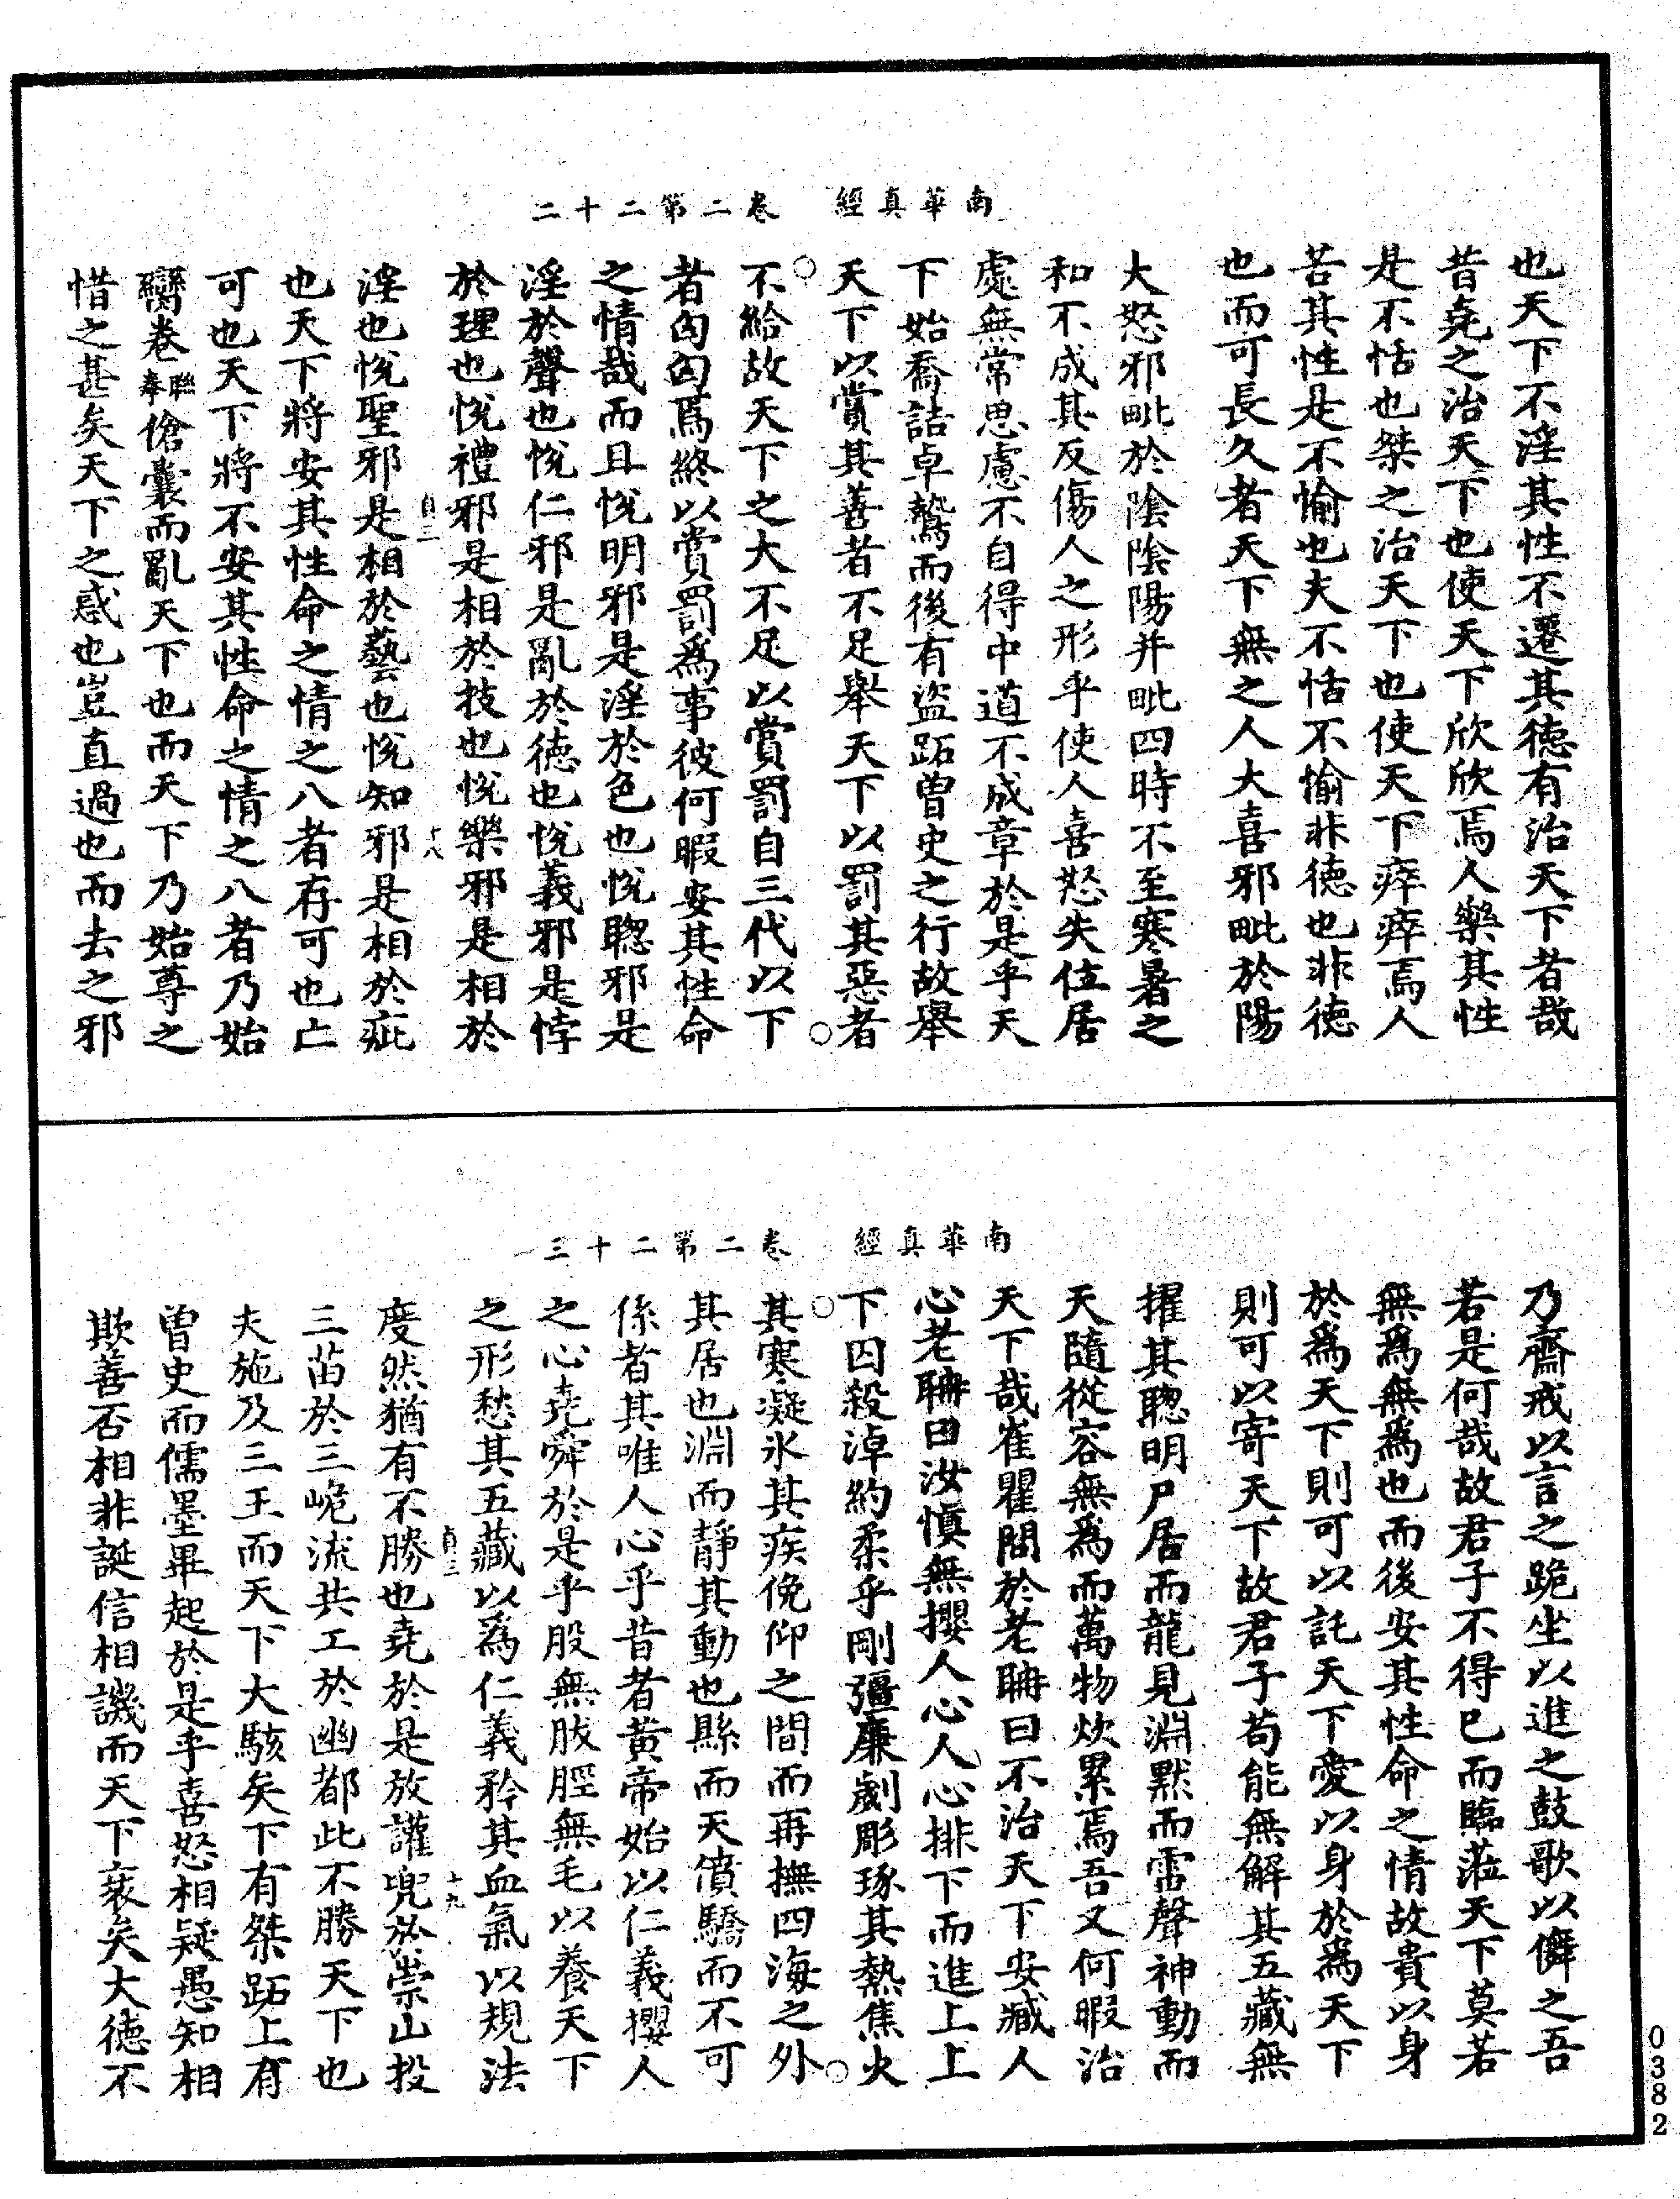 南華真經　卷二第二十二
也天下不淫其性不遷其德有治天下者哉
昔堯之治天下也使天下欣欣焉人樂其性
是不恬也桀之治天下也使天下瘁瘁焉人
苦其性是不愉也夫不恬不愉非德也非德
也而可長久者天下無之人大喜邪毗於陽
大怒邪毗於陰陰陽并毗四時不至寒暑之
和不成其反傷人之形乎使人喜怒失位居
處無常思慮不自得中道不成章於是乎天
下始喬詰卓鷙而後有盜跖曾史之行故舉
天下以賞其善者不足舉天下以罰其惡者
不給故天下之大不足以賞罰自三代以下
者匈匈焉終以賞罰為事彼何暇安其性命
之情哉而且悅明邪是淫於色也悅聰邪是
淫於聲也悅仁邪是亂於德也悅義邪是悖
於理也悅禮邪是相於技也悅樂邪是相於
貞二　十八
淫也悅聖邪是相於藝也悅知邪是相於疵
也天下將安其性命之情之八者存可也亡
可也天下將不安其性命之情之八者乃始
臠卷聯拳傖囊而亂天下也而天下乃始尊之
惜之甚矣天下之惑也豈直過也而去之邪
南華真經　卷二第二十三
乃齋戒以言之跪坐以進之鼓歌以儛之吾
若是何哉故君子不得已而臨蒞天下莫若
無為無為也而後安其性命之情故貴以身
於為天下則可以託天下愛以身於為天下
則可以寄天下故君子苟能無解其五藏無
擢其聰明尸居而龍見淵默而雷聲神動而
天隨從容無為而萬物炊累焉吾又何暇治
天下哉崔瞿問於老聃曰不治天下安臧人
心老聃曰汝慎無攖人心人心排下而進上上
下囚殺淖約柔乎剛彊廉劌彫琢其熱焦火
其寒凝氷其疾俛仰之間而再撫四海之外
其居也淵而靜其動也縣而天僨驕而不可
係者其唯人心乎昔者黃帝始以仁義攖人
之心堯舜於是乎股無胈脛無毛以養天下
之形愁其五藏以為仁義矜其血氣以規法
貞三　十九
度然猶有不勝也堯於是放讙兜於崇山投
三苗於三峗流共工於幽都此不勝天下也
夫施及三王而天下大駭矣下有桀跖上有
曾史而儒墨畢起於是乎喜怒相疑愚知相
欺善否相非誕信相譏而天下衰矣大德不
0382